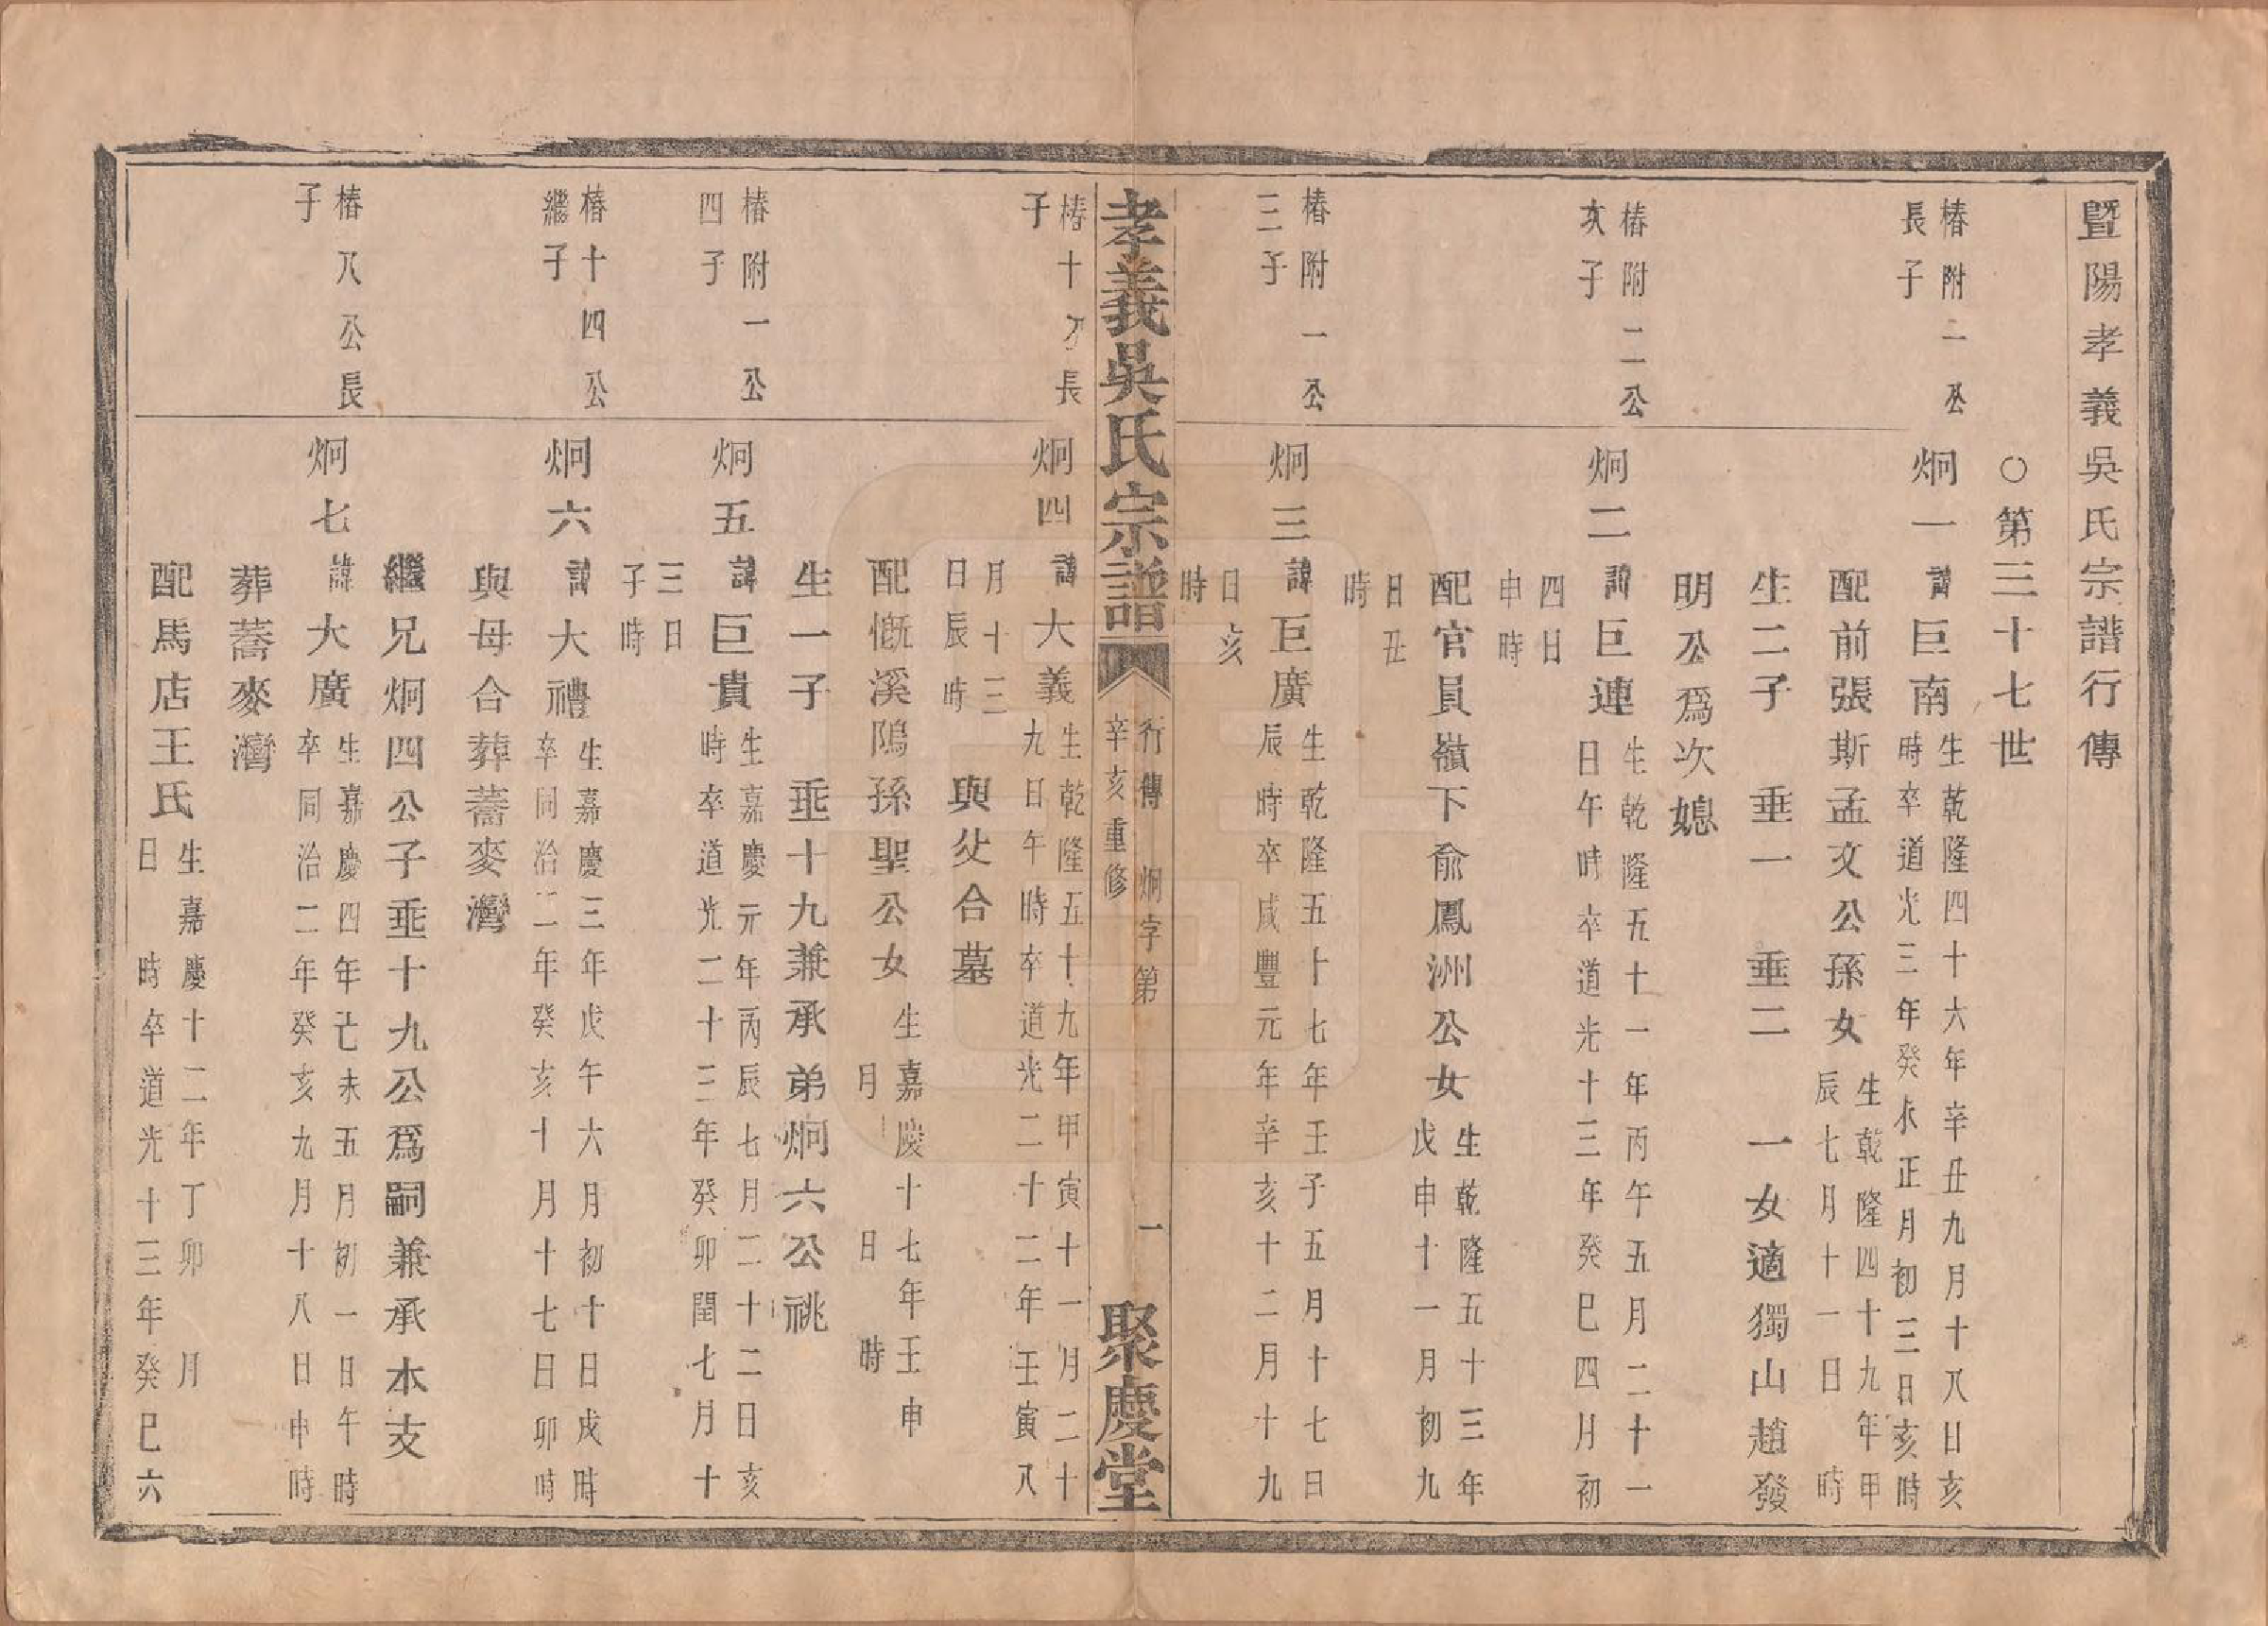 暨陽孝義吳氏宗譜行傳
○第三十七世
椿附二公
長子
炯一
諱
巨南
生乾隆四十六年辛丑九月十八日亥
時卒道光三年癸未正月初三日亥時
配前張斯孟文公孫女
生乾隆四十九年甲
辰七月十一日 時
生二子 垂一 垂二 一女適獨山趙發
明公爲次媳
椿附二公
次子
炯二
諱
巨連
生乾隆五十一年丙午五月二十一
日午時卒道光十三年癸巳四月初
四日
申時
配官員嶺下俞鳳洲公女
生乾隆五十三年
戊申十一月初九
日丑
時
椿附一公
三子
炯三
諱
巨廣
生乾隆五十七年壬子五月十七日
辰時卒咸豐元年辛亥十二月十九
日亥
時
孝義吳氏宗譜
行傳 炯字第 一
辛亥重修
聚慶堂
椿十 長
子
炯四
諱
大義
生乾隆五十九年甲寅十一月二十
九日午時卒道光二十二年壬寅八
月十三
日辰時
與父合墓
配慨溪隝孫聖公女
生嘉慶十七年壬申
月 日 時
生一子 垂十九兼承弟炯六公祧
椿附一公
四子
炯五
諱
巨貴
生嘉慶元年丙辰七月二十二日亥
時卒道光二十三年癸卯閏七月十
三日
子時
椿十四公
繼子
炯六
諱
大禮
生嘉慶三年戊午六月初十日戌時
卒同治二年癸亥十月十七日卯時
與母合葬蕎麥灣
繼兄炯四公子垂十九公爲嗣兼承本支
椿八公長
子
炯七
諱
大廣
生嘉慶四年己未五月初一日午時
卒同治二年癸亥九月十八日申時
葬蕎麥灣
配馬店王氏
生嘉慶十二年丁卯 月
日 時卒道光十三年癸巳六